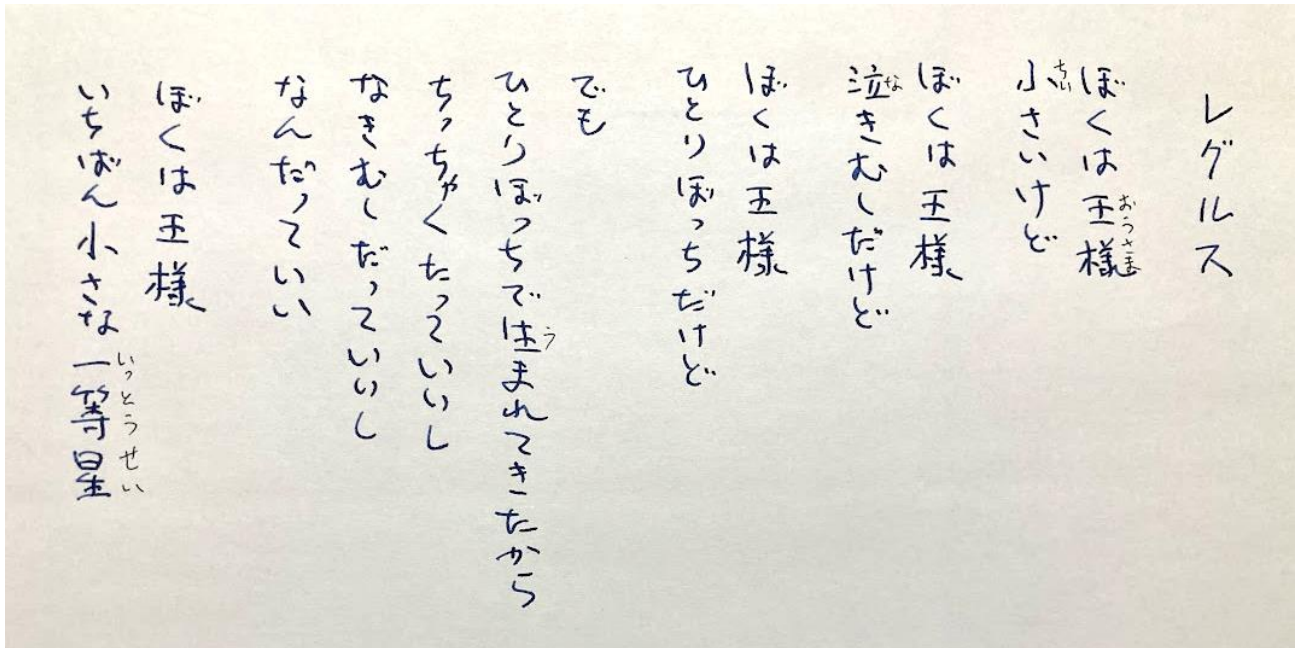 レグルス
ぼくは王様
小さいけど
ぼくは王様
泣きむしだけど
ぼくは王様
ひとりぼっちだけど
でも
ひとりぼっちで生まれてきたから
ちっちゃくたっていいし
なきむしだっていいし
なんだっていい
ぼくは王様
いちばん小さな一等星
おうさま
ちい
な
う
いっとうせい